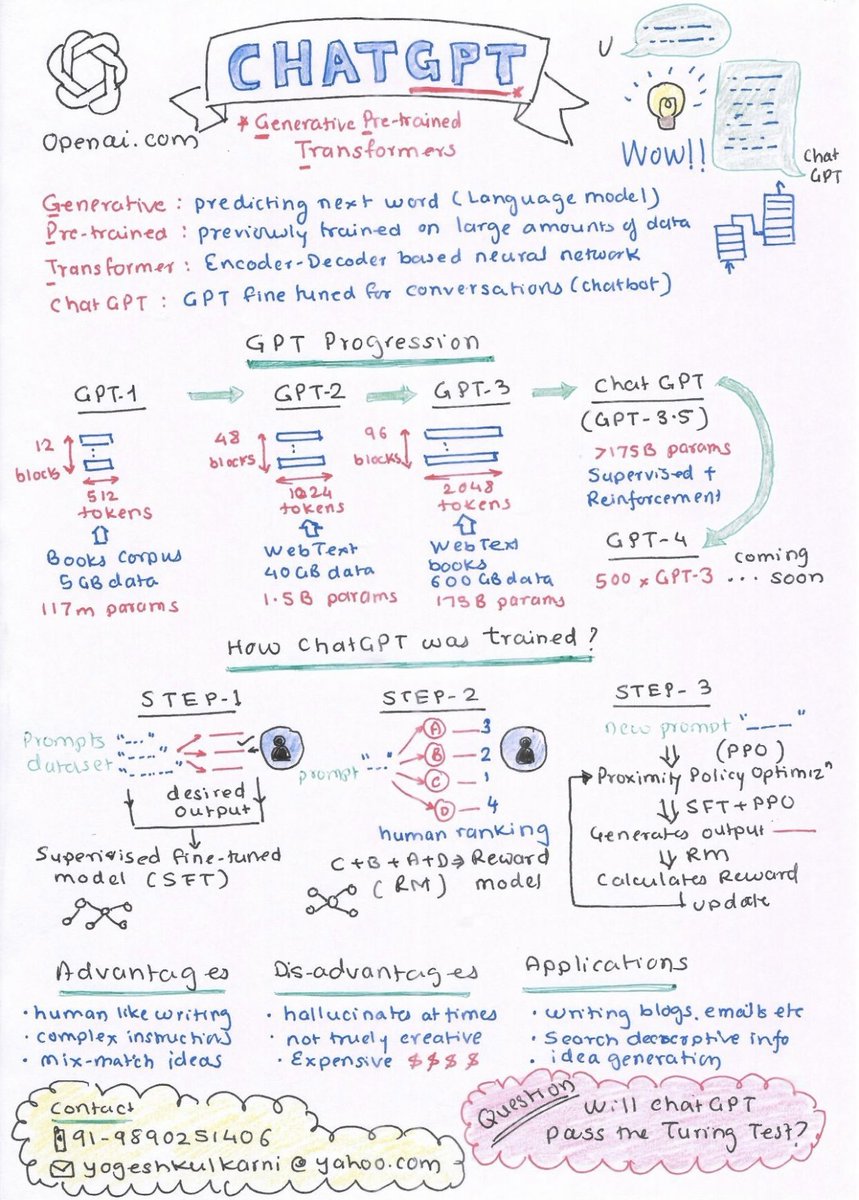 CHATGPT
Openai.com
* Generative Pre-trained
Transformers
U
WOW!!
Chat
GPT
Generative : predicting next word (Language model)
Pre-trained : previously trained on large amounts of data
Transformer : Encoder-Decoder based neural network
Chat GPT : GPT fine tuned for conversations (chatbot)
GPT Progression
GPT-1
12
blocks
512
tokens
Books Corpus
5GB data
117m params
GPT-2
48
blocks
1024
tokens
WebText
40GB data
1.5B params
GPT-3
96
blocks
2048
tokens
WebText
books
600GB data
175B params
Chat GPT
(GPT-3.5)
>175B params
Supervised +
Reinforcement
GPT-4
500 x GPT-3
coming
... soon
How ChatGPT was trained?
STEP-1
Prompts
dataset
"---"
"----"
"-----"
desired
output
Superivised fine-tuned
model (SFT)
STEP-2
prompt "---"
A 3
B 2
C 1
D 4
human ranking
C+B+A+D⇒ Reward
(RM) model
STEP-3
new prompt "----"
(PPO)
Proximity Policy Optimizⁿ
SFT+PPO
Generates output
RM
Calculates Reward
update
Advantages
• human like writing
• complex instructions
• mix-match ideas
Dis-advantages
• hallucinates at times
• not truely creative
• Expensive $$$$
Applications
• writing blogs, emails etc
• Search descriptive info
• idea generation
Contact
91-9890251406
yogeshkulkarni@yahoo.com
Question
Will ChatGPT
pass the Turing Test?